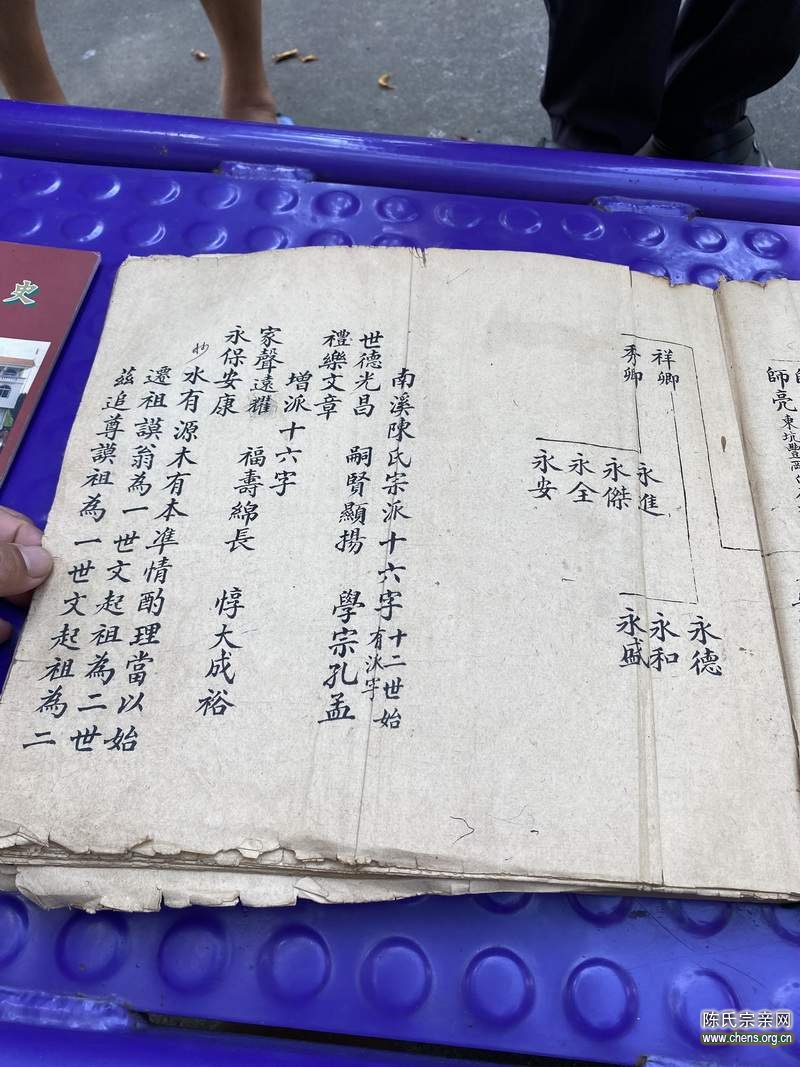 師亮 東坑豐岡
祥卿
秀卿
永進
永傑
永全
永安
永德
永和
永盛
南溪陳氏宗派十六字 十二世始有派字
世德光昌 嗣賢顯揚 學宗孔孟
禮樂文章
增派十六字
家聲遠耀 福壽綿長 惇大成裕
永保安康
水有源木有本凖情酌理當以始
遷祖謨翁為一世文起祖為二世
茲追尊謨祖為一世文起祖為二
史
陈氏宗亲网
www.chens.org.cn